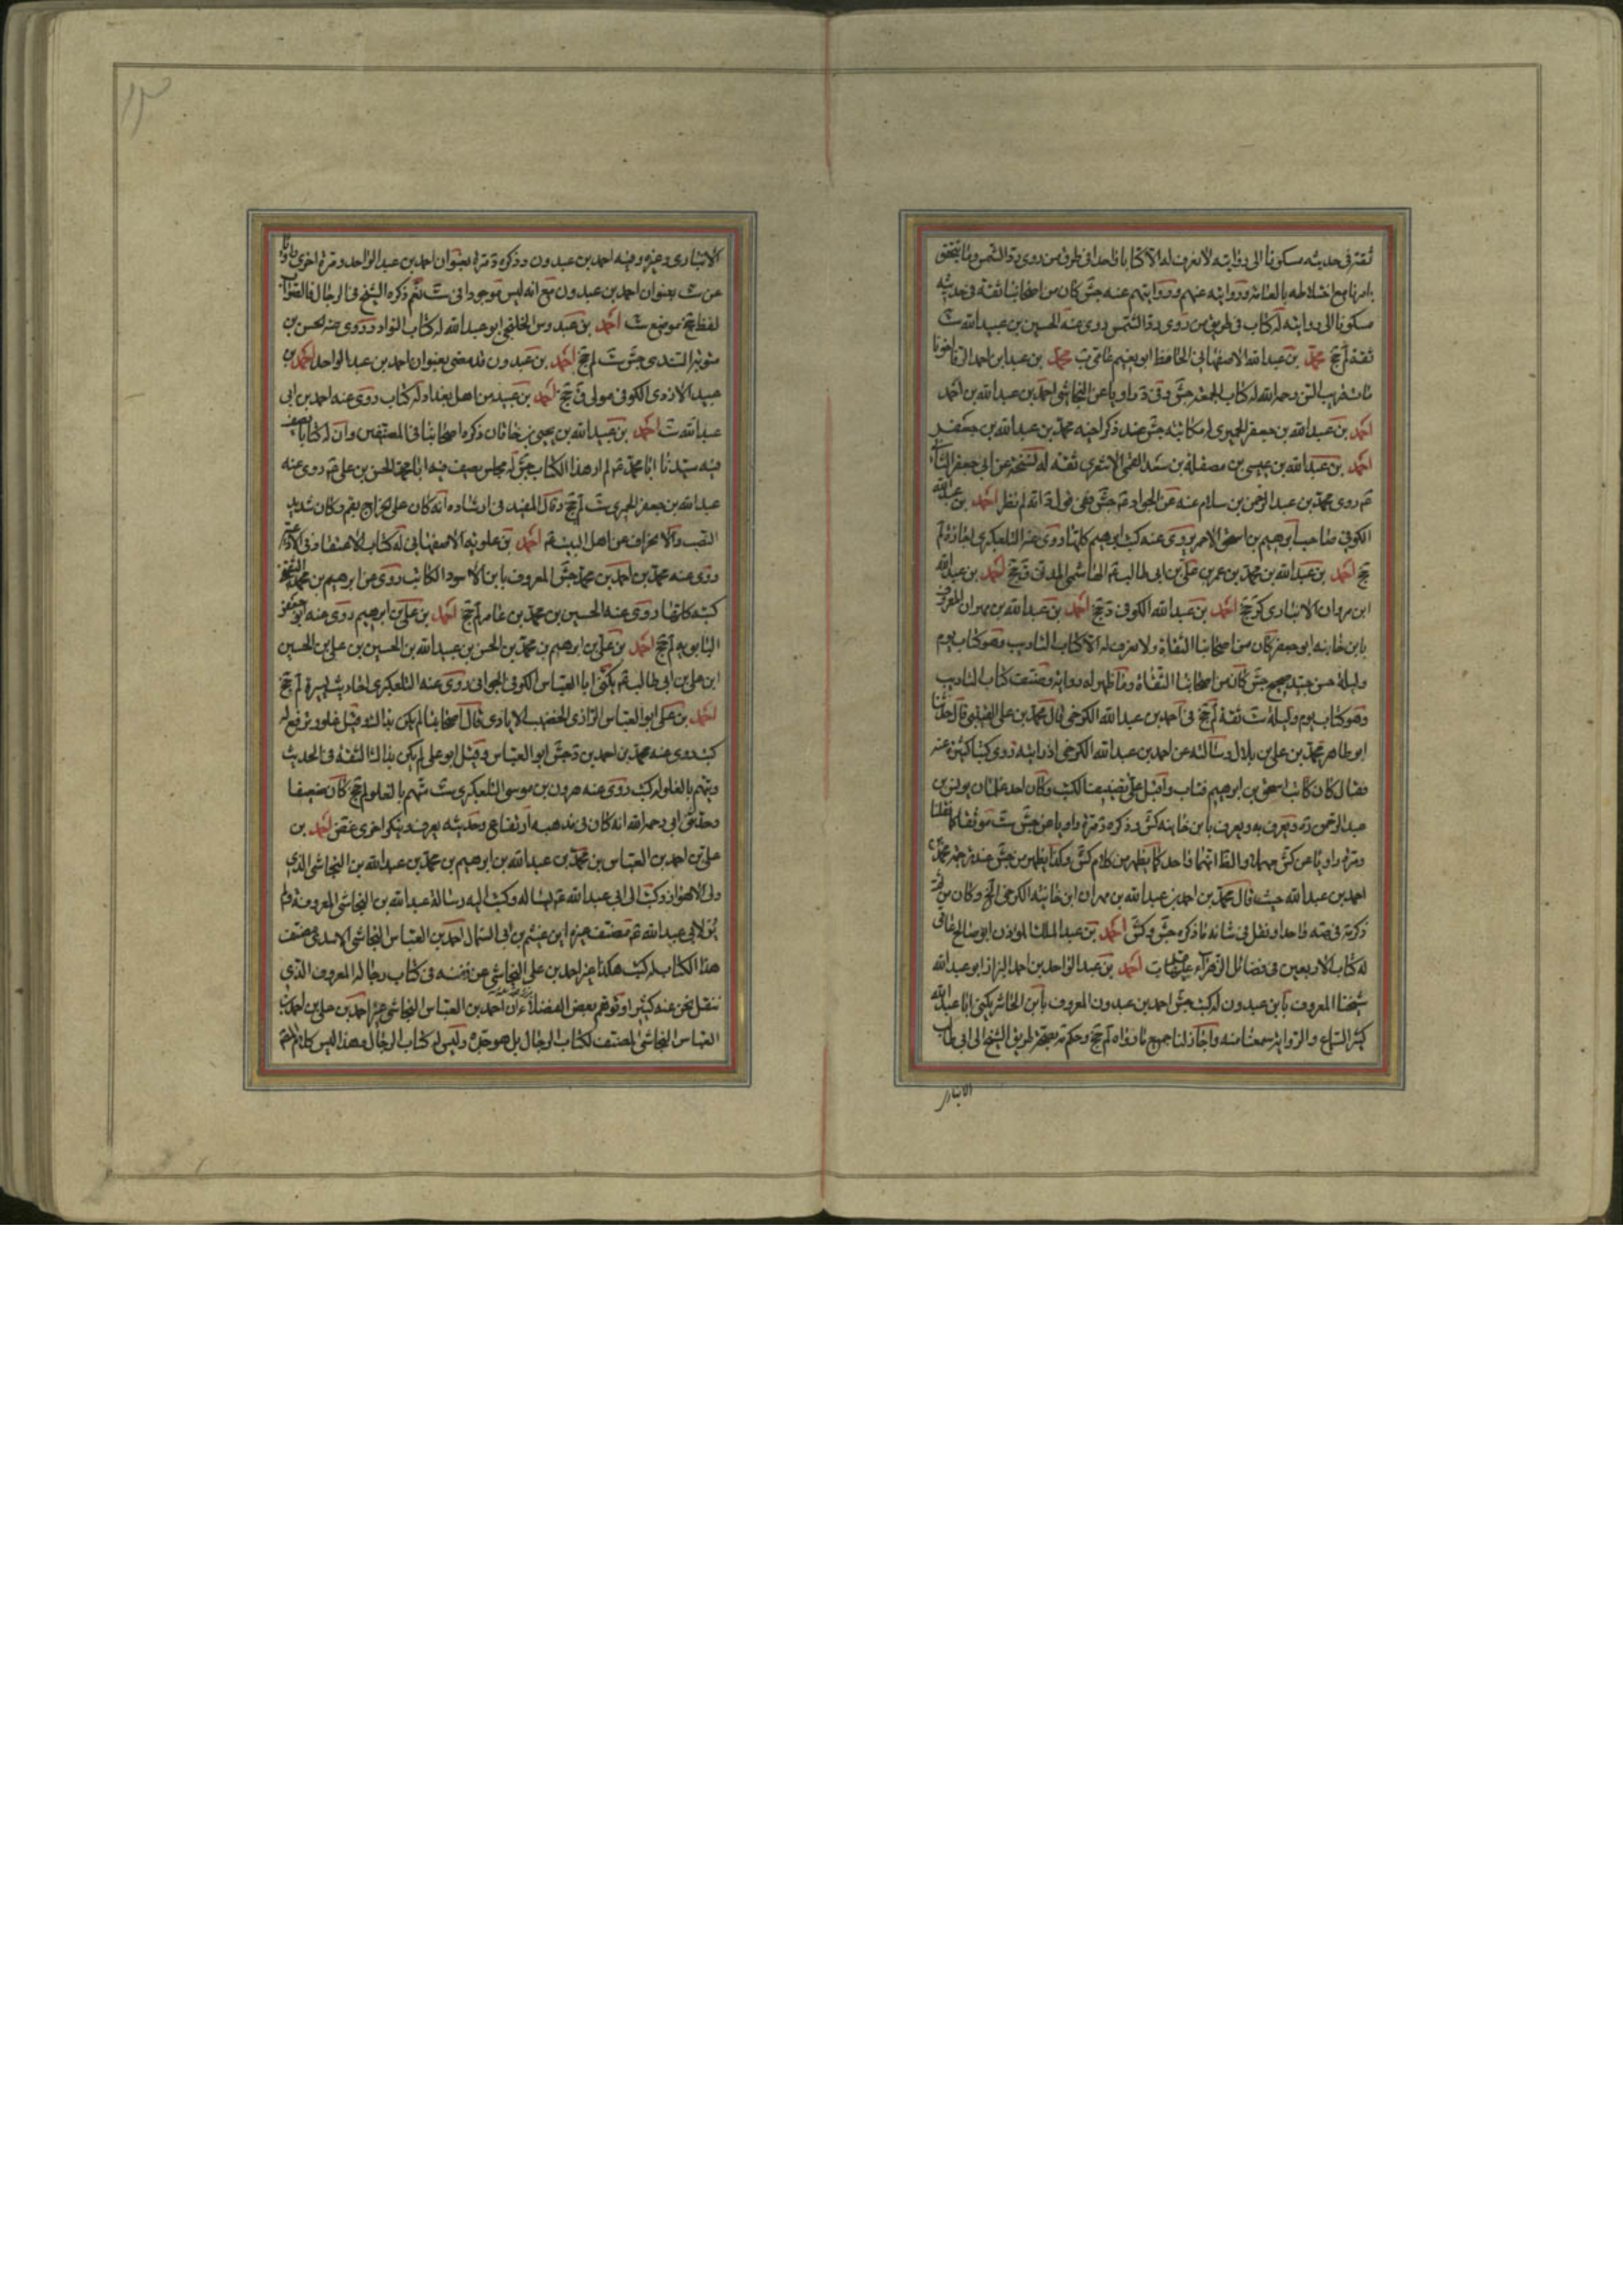 ثقة في حديثه مسكونا الى روايته لا نعرف له الا كتابا واحدا في طرق من روى رد الشمس وما يتحقق
بامرنا مع اختلاطه بالعامة وروايته عنهم وروايتهم عنه جش كان من اصحابنا ثقة في حديثه
مسكونا الى روايته له كتاب في طريق من روى رد الشمس روى عنه الحسين بن عبيد الله ست
ثقة لم جخ بن عبد الله الاصفهاني الحافظ ابو نعيم عامي ب بن عبد بن احمد الرفا اخونا
مات قريب السن رحمه الله له كتاب الجمعة جش وفي د راويا عن النجاشي احمد بن عبد الله بن احمد
احمد بن عبد الله بن جعفر الحميري له مكاتبة جش عند ذكر اخيه محمد بن عبد الله بن جعفر
احمد بن عبد الله بن عيسى بن مصقلة بن سعد القمي الاشعري ثقة له نسخة عن ابي جعفر الثاني
ع روى محمد بن عبد الرحمن بن سلام عنه عن الجواد ع جش ففي قول د انه لم نظر احمد بن عبد الله
الكوفي صاحب ابرهيم بن اسحق الاحمر يروي عنه كتب ابرهيم كلها روى عنه التلعكبري اجازة لم
جخ احمد بن عبد الله بن محمد بن عمر بن علي بن ابي طالب ع الهاشمي المدني ق جخ احمد بن عبد الله
ابن مهران الانباري كر جخ احمد بن عبد الله الكوفي د جخ احمد بن عبد الله بن مهران المعروف
بابن خانبه ابو جعفر كان من اصحابنا الثقاة ولا نعرف له الا كتاب التاديب وهو كتاب يوم
وليلة حسن جيد صحيح جش كان من اصحابنا الثقاة وما ظهر له رواية وصنف كتاب التاديب
وهو كتاب يوم وليلة ست ثقة لم جخ في احمد بن عبد الله الكرخي قال محمد بن علي قال حدثنا
ابو طاهر محمد بن علي بن بلال وسالته عن احمد بن عبد الله الكرخي اذ رايته روى كتبا كثيرة عنه
فقال كان كاتب اسحق بن ابرهيم فتاب واقبل على تصنيف الكتب وكان احد غلمان يونس بن
عبد الرحمن ره ويعرف به ويعرف بابن خانبه كش وذكره د مرة راويا عن جش ست موثقا كما نقلنا
ومرة راويا عن كش مهملا والظ انهما واحد كما يظهر من كلام كش وكذا يظهر من جش عند ترجمة محمد
احمد بن عبد الله حيث قال محمد بن احمد بن عبد الله بن مهران ابن خانبه الكرخي الخ وكان من
ذكر د في صه واحدا ونقل في شانه ما ذكره جش وكش احمد بن عبد الملك المؤذن ابو صالح عامي
له كتاب الاربعين في فضائل الزهراء عليها ب احمد بن عبد الواحد بن احمد البزاز ابو عبد الله
شيخنا المعروف بابن عبدون له كتب جش احمد بن عبدون المعروف بابن الحاشر يكنى ابا عبد الله
كثير السماع والرواية سمعنا منه واجاز لنا جميع ما رواه لم جخ وحكم بصحة طريق الشيخ الى ابي طالب
الانباري
الانباري وغيره وفيه احمد بن عبدون وذكره د مرة بعنوان احمد بن عبد الواحد ومرة اخرى راويا
عن ست بعنوان احمد بن عبدون مع انه ليس موجودا في ست نعم ذكره الشيخ في الرجال فالصواب
لفظ جخ موضع ست احمد بن عبدوس الخلنجي ابو عبد الله له كتاب النوادر روى عنه الحسن بن
متويه السندي جش ست لم جخ احمد بن عبدون قد مضى بعنوان احمد بن عبد الواحد احمد بن
عبيد الازدي الكوفي مولى ق جخ احمد بن عبيد من اهل بغداد له كتاب روى عنه احمد بن ابي
عبد الله ست احمد بن عبيد الله بن يحيى بن خاقان ذكره اصحابنا في المصنفين وان له كتابا يصف
فيه سيدنا ابا محمد ع لم ار هذا الكتاب جش له مجلس يصف فيه ابا محمد الحسن بن علي ع روى عنه
عبد الله بن جعفر الحميري ست لم جخ وقال المفيد في ارشاده انه كان على الخراج بقم وكان شديد
النصب والانحراف عن اهل البيت ع احمد بن علويه الاصفهاني له كتاب الاعتقاد في الادعية
روى عنه محمد بن احمد بن محمد جش المعروف بابن الاسود الكاتب روى عن ابرهيم بن محمد الثقفي
كتبه كلها روى عنه الحسين بن محمد بن عامر لم جخ احمد بن علي بن ابرهيم روى عنه ابو جعفر
ابن بابويه لم جخ احمد بن علي بن ابرهيم بن محمد بن الحسن بن عبيد الله بن الحسين بن علي بن الحسين
ابن علي بن ابي طالب ع يكنى ابا العباس الكوفي الجواني روى عنه التلعكبري احاديث يسيرة لم جخ
احمد بن علي ابو العباس الرازي الخضيب الايادي قال اصحابنا لم يكن بذاك وقيل غلو وترفع له
كتب روى عنه محمد بن احمد بن د جش ابو العباس وقيل ابو علي لم يكن بذاك الثقة في الحديث
ويتهم بالغلو له كتب روى عنه هرون بن موسى التلعكبري ست متهم بالغلو لم جخ كان ضعيفا
وحدثني ابي رحمه الله انه كان في مذهبه ارتفاع وحديثه يعرف وينكر اخرى غض احمد بن
علي بن احمد بن العباس بن محمد بن عبد الله بن ابرهيم بن محمد بن عبد الله بن النجاشي الذي
ولي الاهواز وكتب الى ابي عبد الله ع يساله وكتب اليه رسالة عبد الله بن النجاشي المعروفة ولم
ير لابي عبد الله ع مصنف غيره ابن عثيم بن ابي السمال احمد بن العباس النجاشي الاسدي مصنف
هذا الكتاب له كتب هكذا عبر احمد بن علي النجاشي عن نفسه في كتاب رجاله المعروف الذي
ننقل نحن عنه كثيرا وتوهم بعض الفضلاء ان احمد بن العباس النجاشي غير احمد بن علي بن احمد بن
العباس النجاشي المصنف لكتاب الرجال بل هو جده وليس له كتاب الرجال وهذا ليس كلام